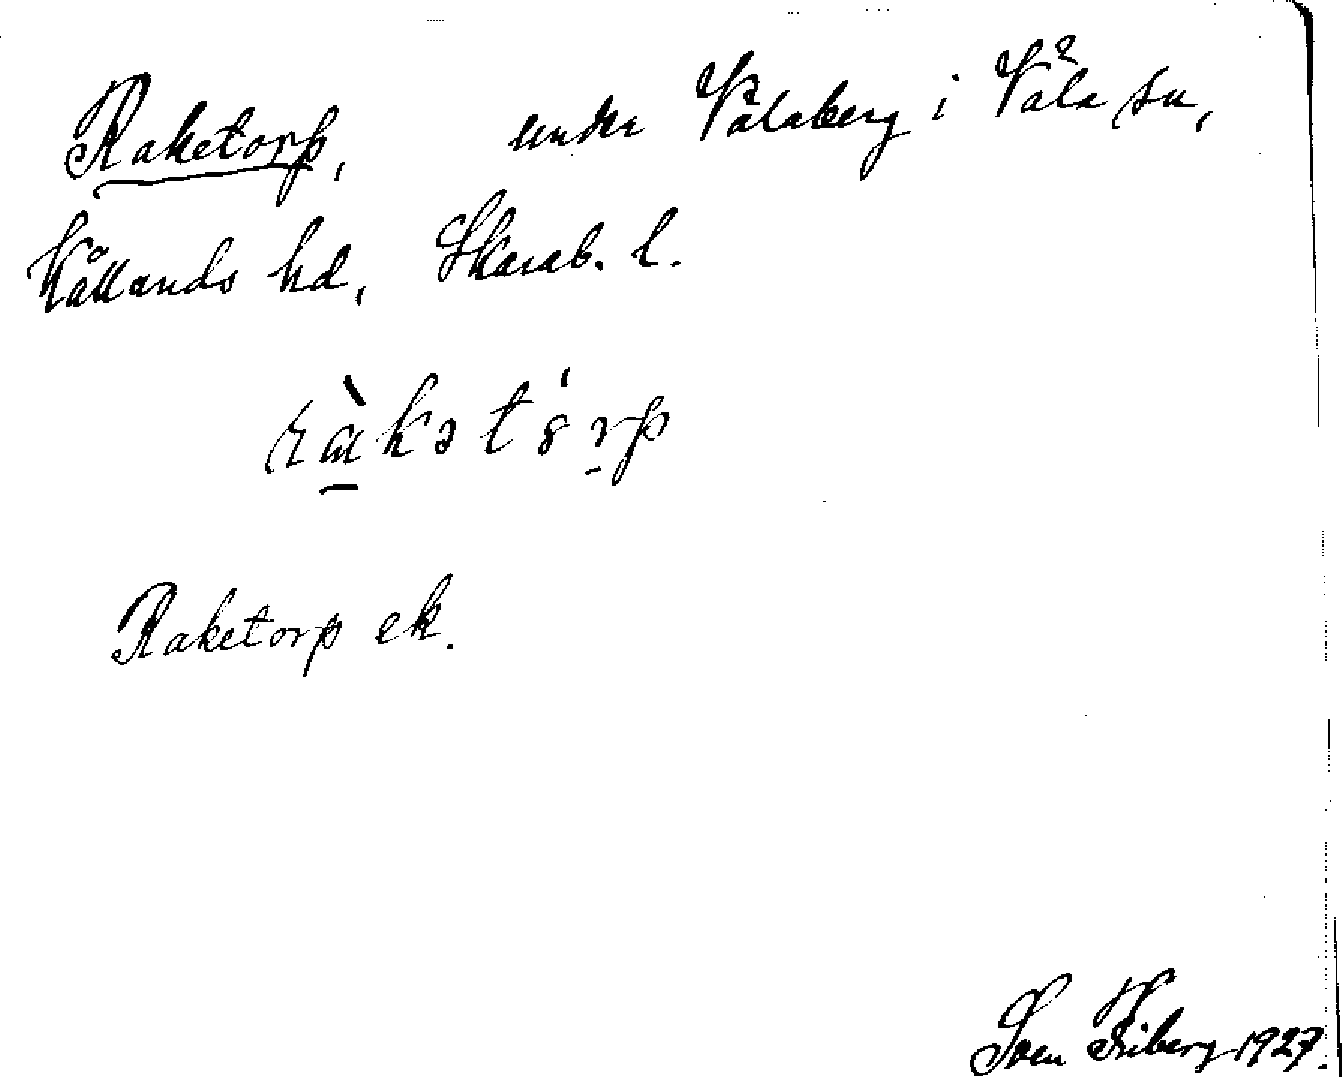 Raketorp, under Vålaberg i Våla sn,
Kållands hd, Skarab. l.
ràkətórp
Raketorp ek.
Sven Friberg 1927.